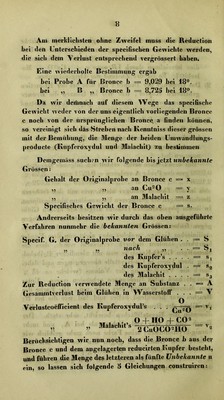 8
Am merklichsten ohne Zweifel muss die Reduction
bei den Unterschieden der specifischen Gewichte werden,
die sich dem Verlust entsprechend vergrössert haben.
Eine wiederholte Bestimmung ergab
bei Probe A für Bronce b = 9,029 bei 18°,
bei „ B „ Bronce b = 8,725 bei 18°.
Da wir demnach auf diesem Wege das specifische
Gewicht weder von der uns eigentlich vorliegenden Bronce
c noch von der ursprünglichen Bronce a finden können,
so vereinigt sich das Streben nach Kenntniss dieser grössen
mit der Bemühung, die Menge der beiden Umwandlungs-
producte (Kupferoxydul und Malachit) zu bestimmen
Demgemäss suchen wir folgende bis jetzt unbekannte
Grössen:
Gehalt der Originalprobe an Bronce c = x
„ „ an Cu²O = y
„ „ an Malachit = z
Specifisches Gewicht der Bronce c = s,
Andrerseits besitzen wir durch das oben ausgeführte
Verfahren nunmehr die bekannten Grössen:
Specif. G. der Originalprobe vor dem Glühen . = S
„ „ nach „ = S,
des Kupfer's . . =
des Kupferoxydul . =
des Malachit . . . =
Zur Reduction verwendete Menge an Substanz . . = A
Gesammtverlust beim Glühen in Wasserstoff . . = V
Verlustcoëfficient des Kupferoxydul's . . . . O / Cu²O =
„ „ Malachit's O + HO + CO² / 2 CuOCO²HO =
Berücksichtigen wir nun noch, dass die Bronce b aus der
Bronce c und dem angelagerten reducirten Kupfer besteht,
und führen die Menge des letzteren als fünfte Unbekannte u
ein, so lassen sich folgende 5 Gleichungen construiren: